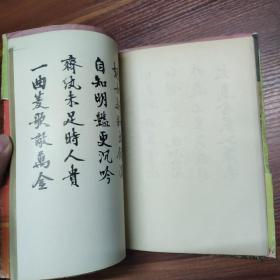 自知明豔更沉吟
齊紈未足時人貴
一曲菱歌敵萬金